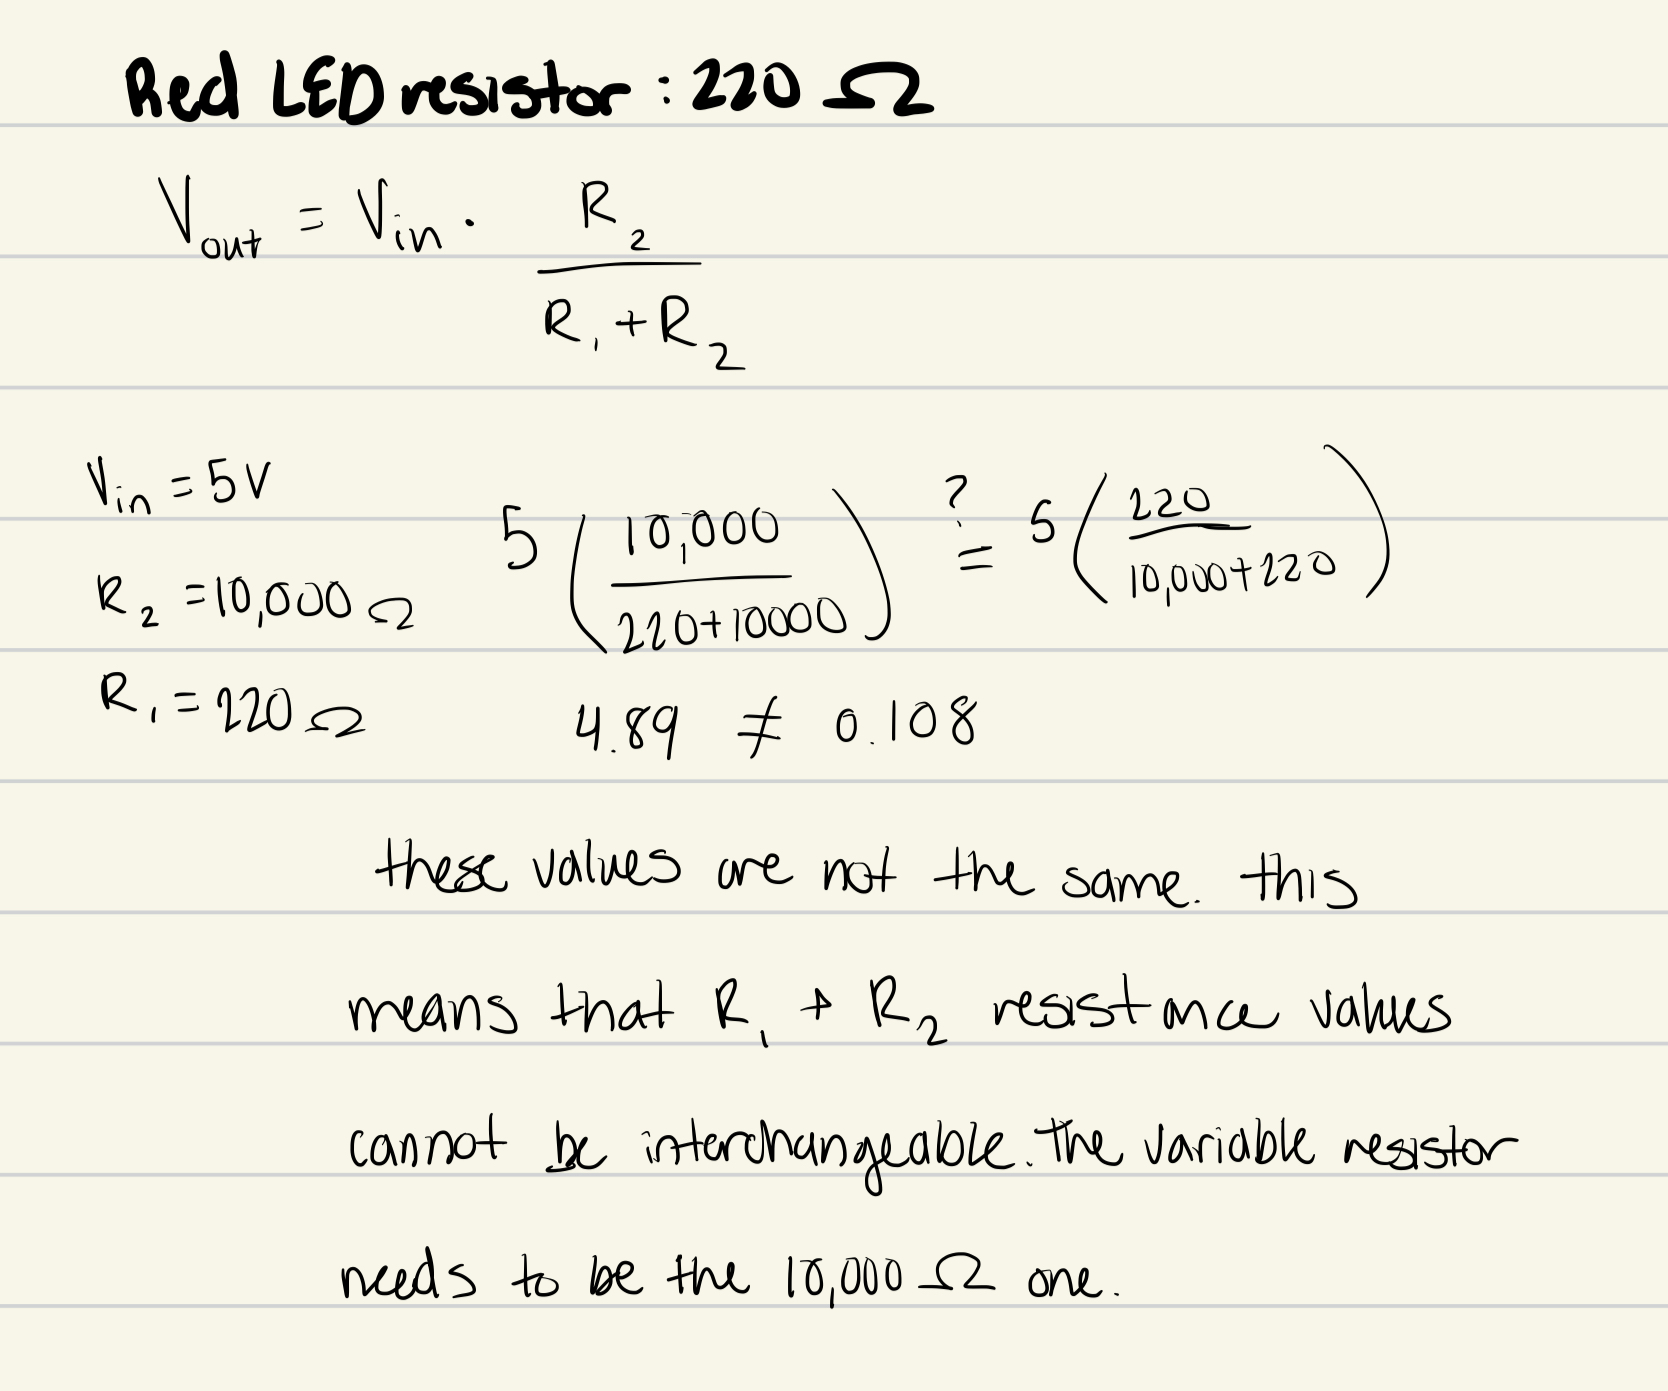 Red LED resistor : 220 Ω
V_out = V_in · R_2 / (R_1 + R_2)
V_in = 5V
R_2 = 10,000 Ω
R_1 = 220 Ω
5 (10,000 / (220+10000)) ?= 5 (220 / (10,000+220))
4.89 ≠ 0.108
these values are not the same. this
means that R_1 + R_2 resistance values
cannot be interchangeable. The variable resistor
needs to be the 10,000 Ω one.